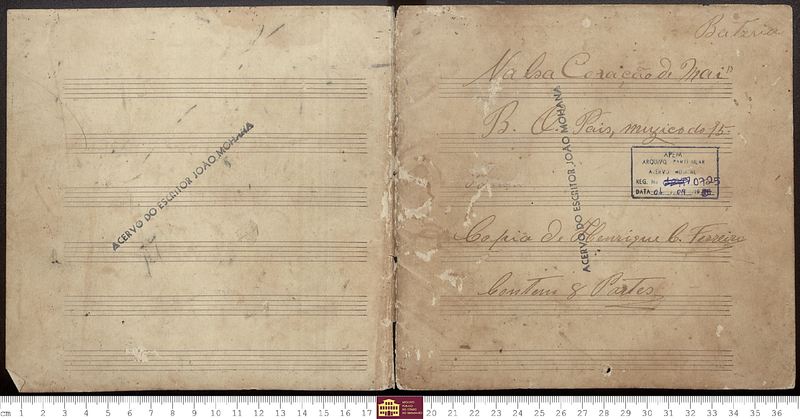 ACERVO DO ESCRITOR JOÃO MOHANA
Bateria
Valsa Coração de Mai"
B. O. Pais, muzico do 15
ACERVO DO ESCRITOR JOÃO MOHANA
APEM
ARQUIVO PARTICULAR
ACERVO MUSICAL
REG. Nº 0725
DATA 01 / 09 /
Copia de Henrique C. Ferreira
Contem 8 Partes
cm 1 2 3 4 5 6 7 8 9 10 11 12 13 14 15 16 17 20 21 22 23 24 25 26 27 28 29 30 31 32 33 34 35 36